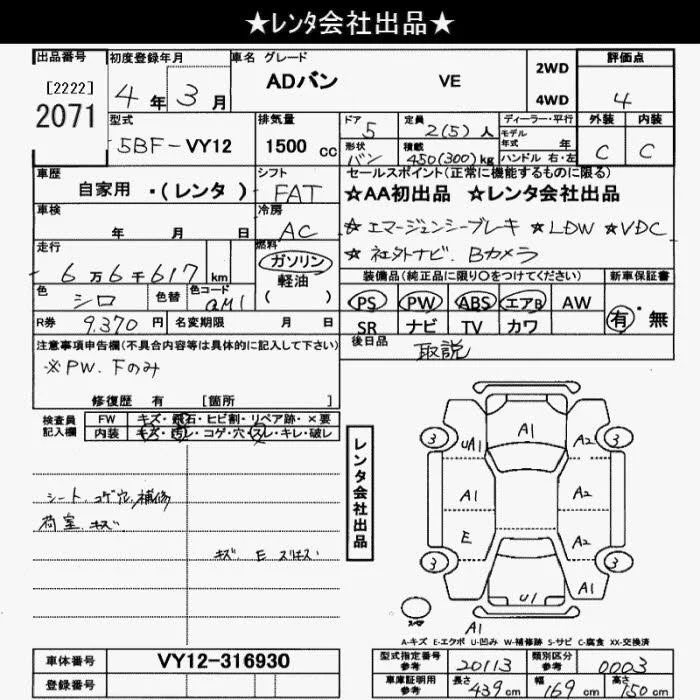 ★レンタ会社出品★
出品番号 初度登録年月 車名 グレード 評価点
[2222]
2071
4年 3月 ADバン VE 2WD 4WD 4
型式 排気量 ドア 定員 ディーラー・平行 外装 内装
5BF-VY12 1500 cc 5 2(5)人 モデル年式 年 C C
形状 バン 積載 450(300)kg ハンドル 右・左
車歴 シフト セールスポイント(正常に機能するものに限る)
自家用 ・(レンタ) FAT ★AA初出品 ★レンタ会社出品
車検 年 月 日 冷房 AC ☆エマージェンシーブレーキ ★LDW ★VDC
走行 6万6千617km 燃料 ガソリン 軽油 ( ) ★社外ナビ.Bカメラ
色 シロ 色替 色コード QM1 装備品(純正品に限り○をつけてください) 新車保証書
PS PW ABS エアB AW 有・無
R券 9,370円 名変期限 月 日 SR ナビ TV カワ
注意事項申告欄(不具合内容等は具体的に記入して下さい) 後日品 取説
※PW.Fのみ
修復歴 有 [箇所 ]
検査員記入欄 FW キズ・飛石・ヒビ割・リペア跡・×要
内装 キズ・汚レ・コゲ・穴・スレ・キレ・破レ
シート.コゲ穴.補修
荷室.キズ
キズ E スリキズ
レンタ会社出品
A1
3 UA1 A2 3
A1 A2
E A2
3 3
U1 A1
A1
A-キズ E-エクボ U-凹み W-補修跡 S-サビ C-腐食 XX-交換済
車体番号 VY12-316930 型式指定番号 参考 20113 類別区分 参考 0003
登録番号 車庫証明用 参考 長さ 439cm 幅 169cm 高さ 150cm